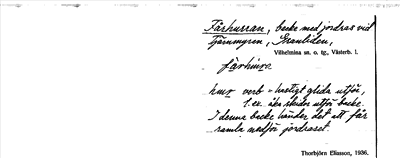 Fårhurran, backe med jordras vid
Tjärnmyren, Granliden,
Vilhelmina sn. o. tg., Västerb. l.
hurr verb = hastigt glida utför,
t.ex. åka skidor utför backe.
I denna backe händer det att får
ramla medför jordraset.
Thorbjörn Eliasson, 1936.